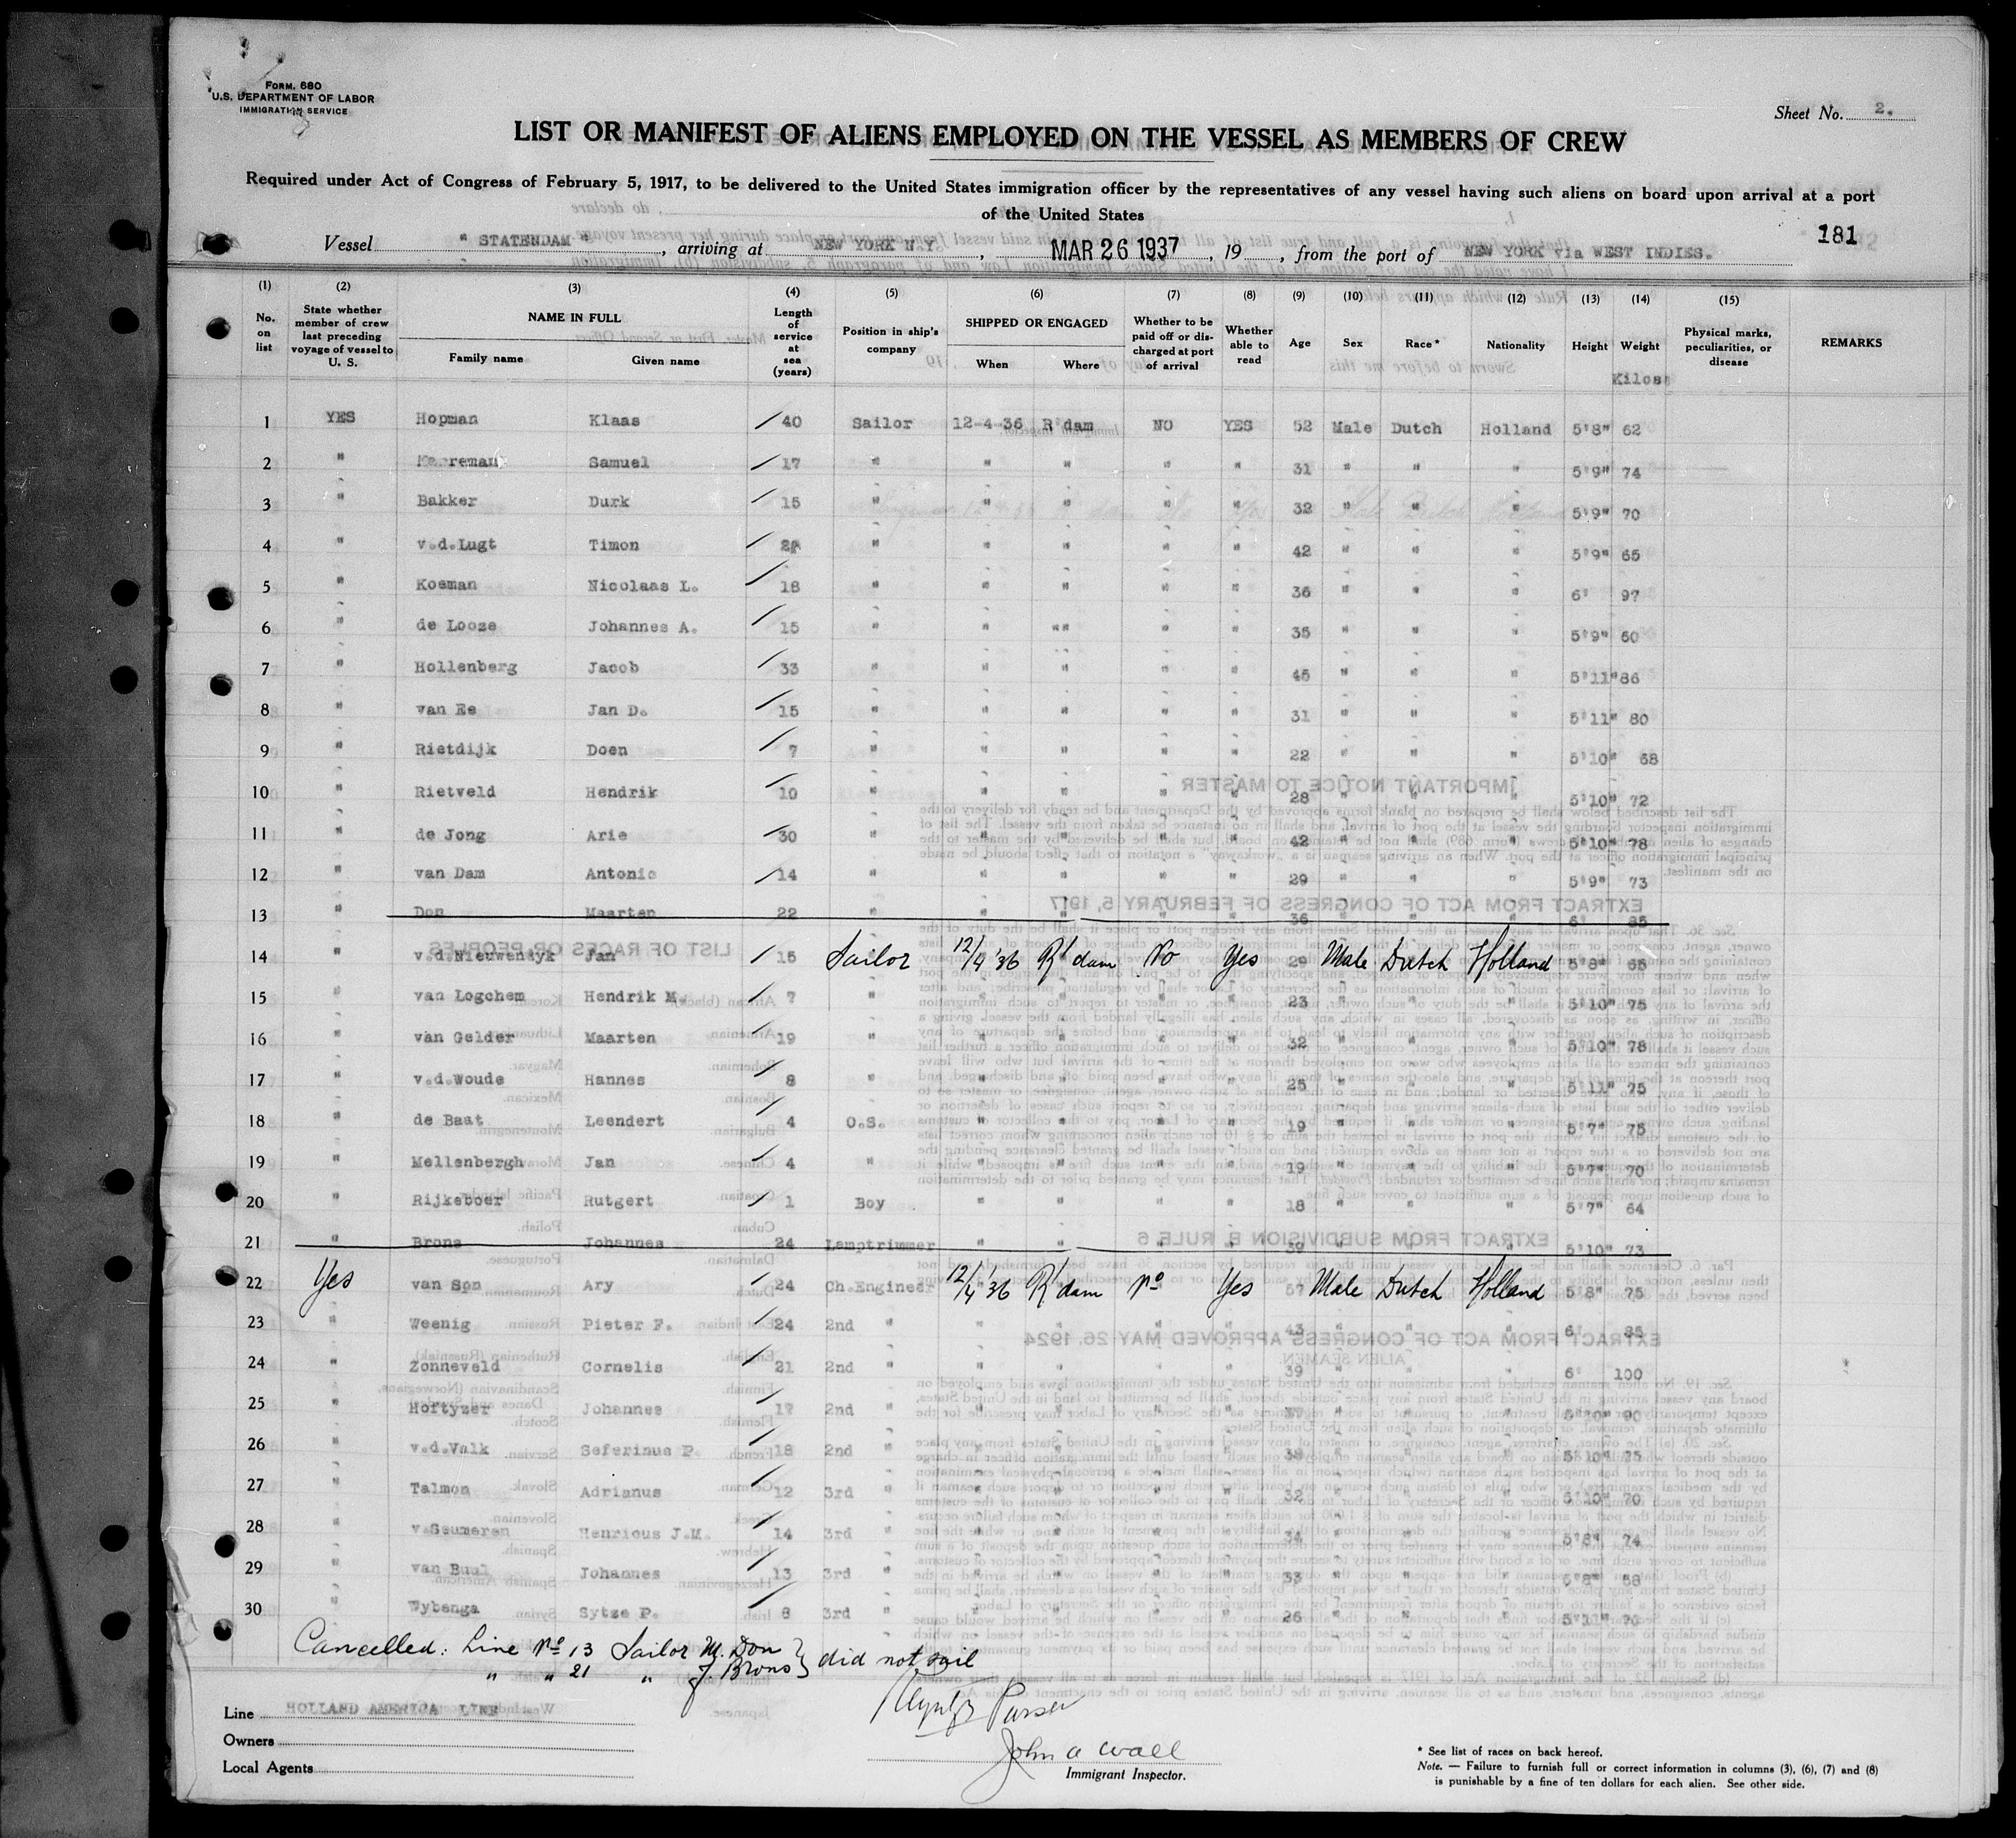 FORM. 680
U.S. DEPARTMENT OF LABOR
IMMIGRATION SERVICE
Sheet No. 2.
LIST OR MANIFEST OF ALIENS EMPLOYED ON THE VESSEL AS MEMBERS OF CREW
Required under Act of Congress of February 5, 1917, to be delivered to the United States immigration officer by the representatives of any vessel having such aliens on board upon arrival at a port
of the United States
181
Vessel " STATENDAM ", arriving at NEW YORK N.Y., MAR 26 1937, 19 , from the port of NEW YORK via WEST INDIES.
(1) (2) (3) (4) (5) (6) (7) (8) (9) (10) (11) (12) (13) (14) (15)
No. on list State whether member of crew last preceding voyage of vessel to U. S. NAME IN FULL Family name Given name Length of service at sea (years) Position in ship's company SHIPPED OR ENGAGED When Where Whether to be paid off or discharged at port of arrival Whether able to read Age Sex Race* Nationality Height Weight Physical marks, peculiarities, or disease REMARKS
Kilos
1 YES Hopman Klaas / 40 Sailor 12-4-36 R'dam NO YES 52 Male Dutch Holland 5'8" 62
2 " Samuel / 17 " " " " " 31 " " " 5'9" 74
3 " Bakker Durk / 15 " " " " " 32 " " " 5'9" 70
4 " v.d.Lugt Timon / " " " " " 42 " " " 5'9" 65
5 " Koeman Nicolaas L. / 18 " " " " " 36 " " " 6' 97
6 " de Looze Johannes A. / 15 " " "" " " 35 " " " 5'9" 60
7 " Hollenberg Jacob / 33 " " " " " 45 " " " 5'11" 86
8 " van Ee Jan D. / 15 " " " " " 31 " " " 5'11" 80
9 " Rietdijk Doen / 7 " " " " " 22 " " " 5'10" 68
10 " Rietveld Hendrik / 10 " " " " " 28 " " " 5'10" 72
11 " de Jong Arie / 30 " " " " " 42 " " " 5'10" 78
12 " van Dam Antonie / 14 " " " " " 29 " " " 5'9" 73
13 " Don Maarten 22 " " " " " 36 " " " 6' 85
14 " v.d.Nieuwendyk Jan / 15 Sailor 12/4 '36 R'dam No Yes 29 Male Dutch Holland 5'8" 65
15 " van Logchem Hendrik M. / 7 " " " " " 23 " " " 5'10" 75
16 " van Gelder Maarten / 19 " " " " " 32 " " " 5'10" 78
17 " v.d.Woude Hannes / 8 " " " " " 25 " " " 5'11" 75
18 " de Baat Leendert / 4 O.S. " " " " 19 " " " 5'7" 75
19 " Mellenbergh Jan / 4 " " " " " 19 " " " 5'7" 70
20 " Rijkeboer Rutgert / 1 Boy " " " " 18 " " " 5'7" 64
21 " Brons Johannes 24 Lamptrimmer " " " " 39 " " " 5'10" 73
22 Yes van Son Ary / 24 Ch.Engineer 12/4 '36 R'dam No Yes 57 Male Dutch Holland 5'8" 75
23 " Weenig Pieter F. / 24 2nd " " " " " 43 " " " 6' 85
24 " Zonneveld Cornelis / 21 2nd " " " " " 39 " " " 6' 100
25 " Hoftyzer Johannes / 17 2nd " " " " " 37 " " " 5'10" 90
26 " v.d.Valk Seferinus P. / 18 2nd " " " " " 38 " " " 5'10" 75
27 " Talmon Adrianus / 12 3rd " " " " " 32 " " " 5'10" 70
28 " v.Seumeren Henricus J.M. / 14 3rd " " " " " 34 " " " 5'8" 74
29 " van Buul Johannes / 13 3rd " " " " " 33 " " " 5'8" 68
30 " Wybenga Sytze P. / 8 3rd " " " " " 26 " " " 5'11" 70
Cancelled: Line No 13 Sailor M. Don } did not sail
" " 21 " J. Brons
Purser
Line HOLLAND AMERICA LINE
Owners
Local Agents
John A Wall
Immigrant Inspector.
* See list of races on back hereof.
Note. — Failure to furnish full or correct information in columns (3), (6), (7) and (8)
is punishable by a fine of ten dollars for each alien. See other side.